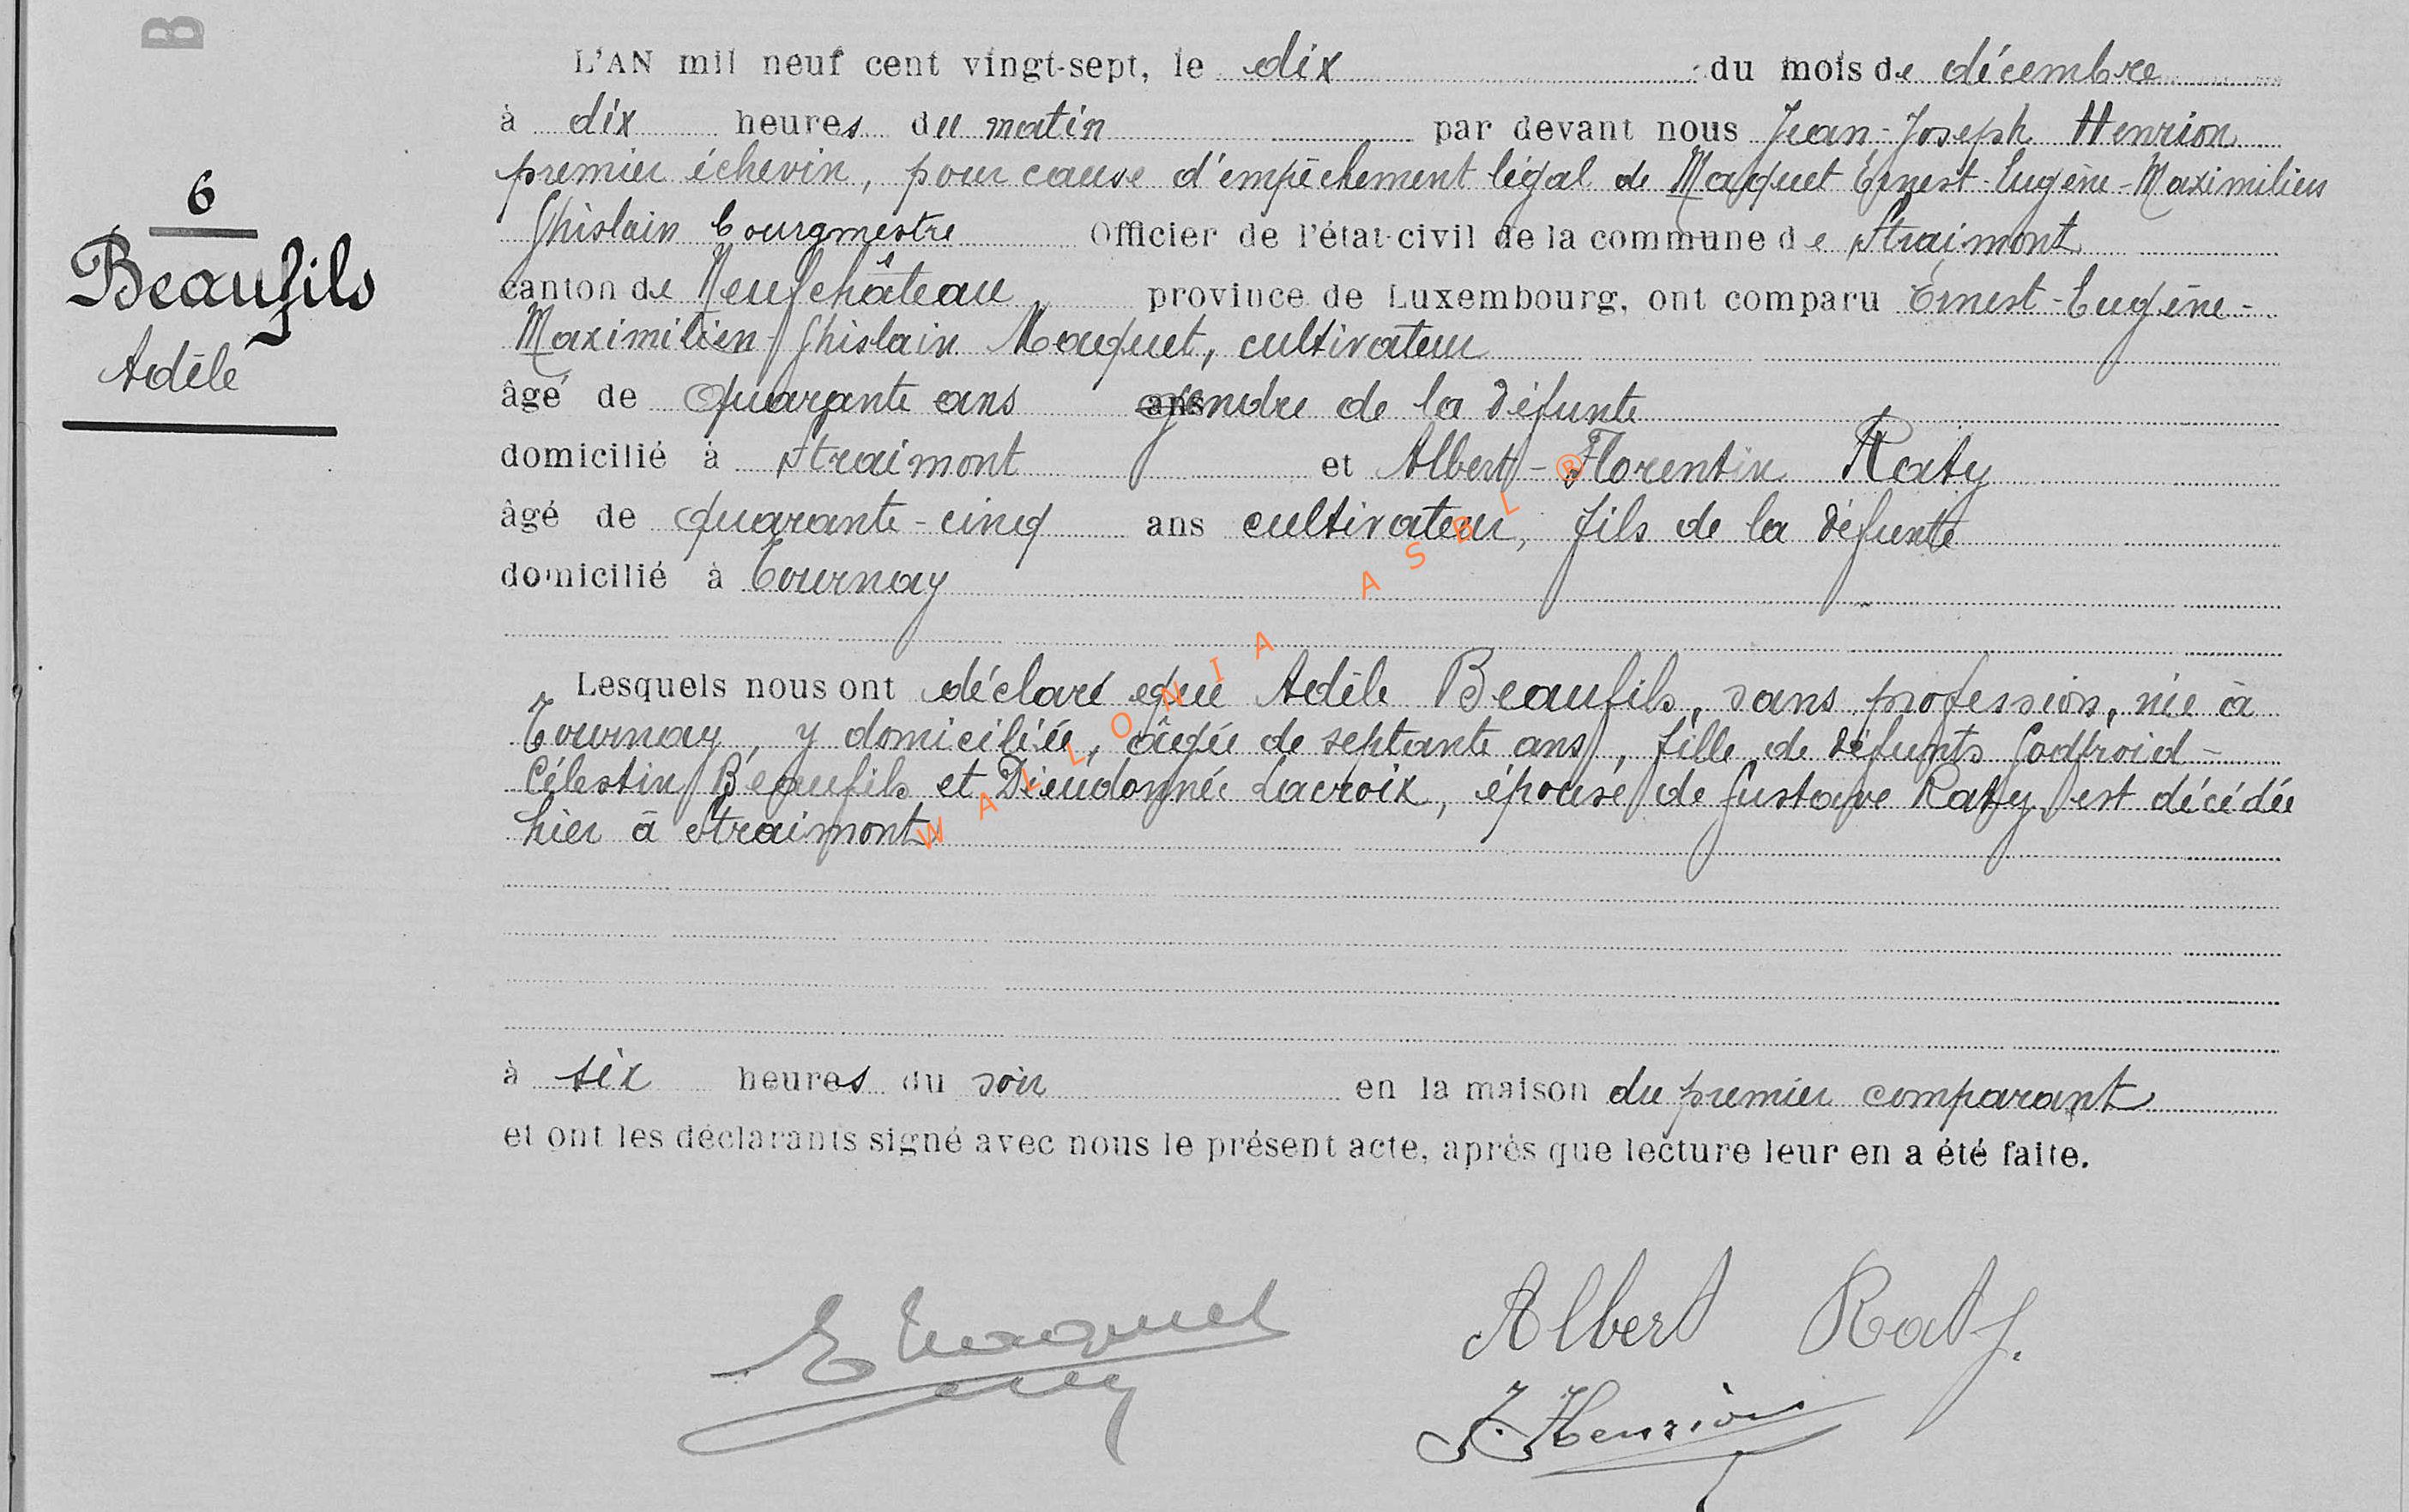 B
L'AN mil neuf cent vingt-sept, le dix du mois de décembre
à dix heures du matin par devant nous Jean-Joseph Henrion
premier échevin, pour cause d'empêchement légal de Maquet Ernest-Eugène-Maximilien
Ghislain bourgmestre Officier de l'état-civil de la commune de Straimont
canton de Neufchâteau province de Luxembourg, ont comparu Ernest-Eugène-
Maximilien-Ghislain Maquet, cultivateur
âgé de quarante ans gendre de la défunte
domicilié à Straimont et Albert-Florentin Raty
âgé de quarante-cinq ans cultivateur, fils de la défunte
domicilié à Tournay
6
Beaufils
Adèle
Lesquels nous ont déclaré que Adèle Beaufils, sans profession, née à
Tournay, y domiciliée, âgée de septante ans, fille de défunts Godfroid-
Célestin Beaufils et Dieudonnée Lacroix, épouse de Gustave Raty est décédée
hier à Straimont
à six heures du soir en la maison du premier comparant
et ont les déclarants signé avec nous le présent acte, après que lecture leur en a été faite.
E Maquet
Albert Raty.
J. Henrion
WALLONIA ASBL ®